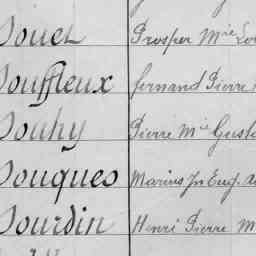 Jouet Prosper Mie Lou
Jouffleux fernand Pierre
Jouhy Pierre Mie Gust
Jouques Marius Jn Eug. A
Jourdin Henri Pierre M